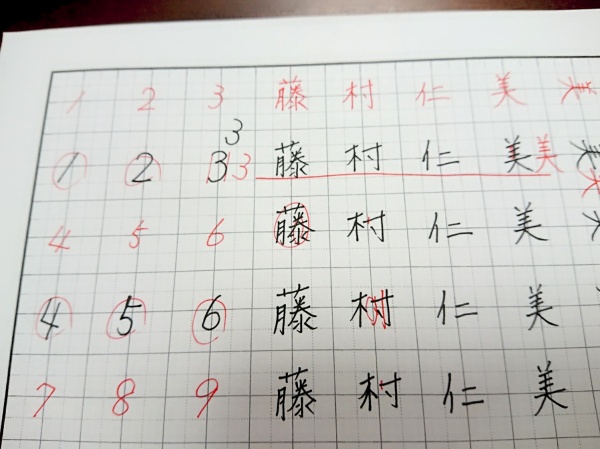 1 2 3 藤 村 仁 美
3
1 2 3 3 藤 村 仁 美 美
4 5 6 藤 村 仁 美
4 5 6 藤 村 仁 美
7 8 9 藤 村 仁 美